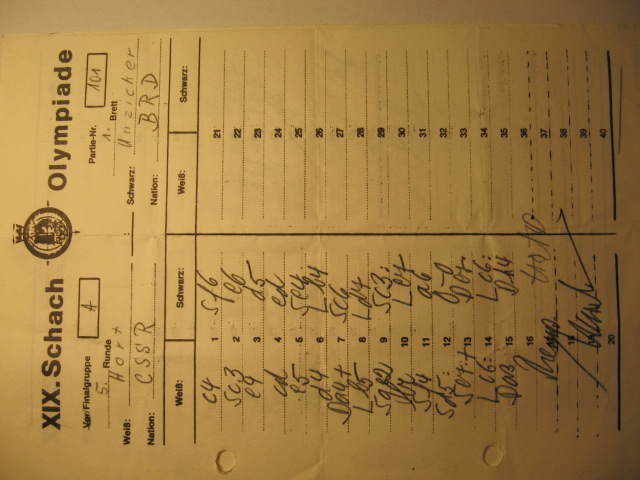 XIX. Schach Olympiade
Vor/Finalgruppe A Partie-Nr. 101
5. Runde 1. Brett
Weiß: Hort Schwarz: Unzicker
Nation: CSSR Nation: BRD
Weiß: Schwarz: Weiß: Schwarz:
c4 1 Sf6 21
Sc3 2 e6 22
e4 3 d5 23
cd 4 ed 24
e5 5 Se4 25
d4 6 Lb4 26
Da4+ 7 Sc6 27
Lb5 8 Ld7 28
Sge2 9 Sc3: 29
bc 10 Le7 30
Sf4 11 a6 31
Sd5: 12 0-0 32
Se7:+ 13 De7: 33
Lc6: 14 Lc6: 34
Da3 15 Dh4 35
Remis 16 36
37
18 38
19 39
20 40